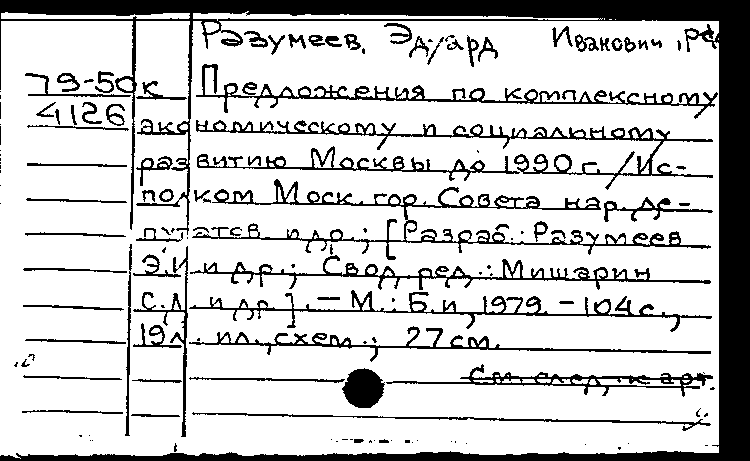 Разумеев, Эдуард Иванович, ред.
79-50к Предложения по комплексному
4126 экономическому и социальному
развитию Москвы до 1990 г. / Ис-
полком Моск. гор. Совета нар. де-
путатов и др.; [Разраб.: Разумеев
Э.И и др.; Свод. ред.: Мишарин
С.Д. и др.]. – М.: Б.и, 1979. – 104 с.,
19л. ил., схем.; 27 см.
См. след. к арт.